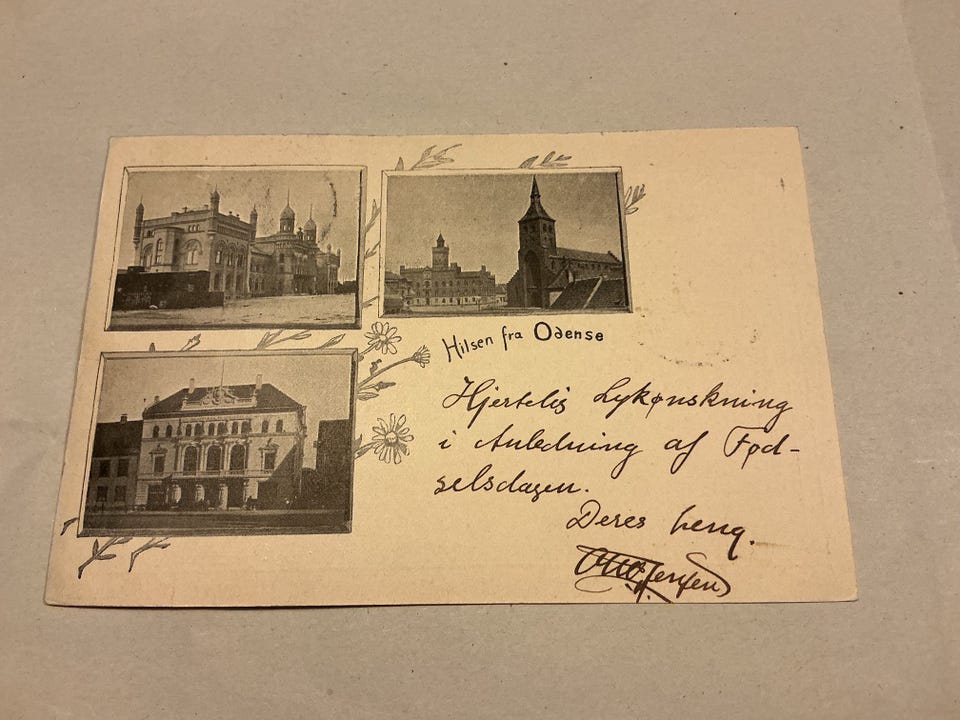 Hilsen fra Odense
Hjertelig Lykønskning
i Anledning af Fød-
selsdagen.
Deres heng.
Jensen